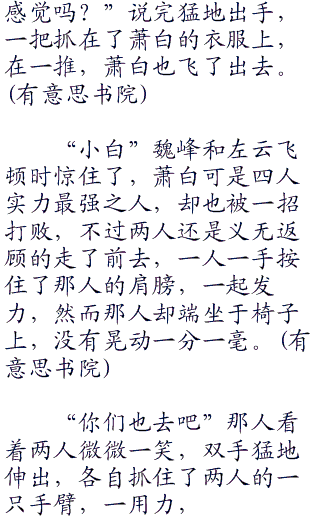 感觉吗？”说完猛地出手，
一把抓在了萧白的衣服上，
在一推，萧白也飞了出去。
(有意思书院)
“小白”魏峰和左云飞
顿时惊住了，萧白可是四人
实力最强之人，却也被一招
打败，不过两人还是义无返
顾的走了前去，一人一手按
住了那人的肩膀，一起发
力，然而那人却端坐于椅子
上，没有晃动一分一毫。(有
意思书院)
“你们也去吧”那人看
着两人微微一笑，双手猛地
伸出，各自抓住了两人的一
只手臂，一用力，